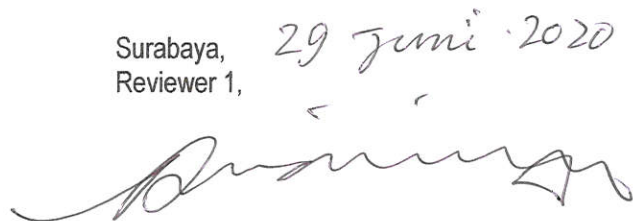 Surabaya, 29 Juni 2020
Reviewer 1,